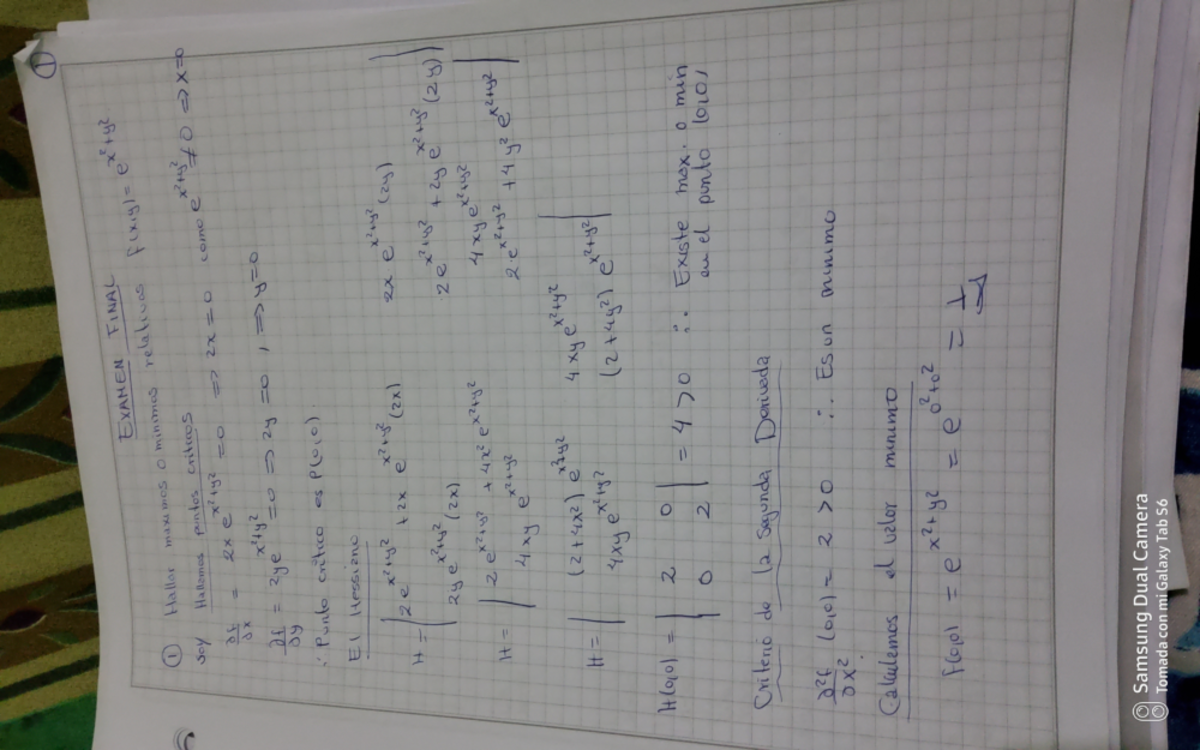 1
EXAMEN FINAL
① Hallar maximos o minimos relativos f(x,y) = e^{x²+y²}
Soy Hallemos puntos criticos
∂f/∂x = 2x e^{x²+y²} = 0 ⇒ 2x = 0 como e^{x²+y²} ≠ 0 ⇒ x = 0
∂f/∂y = 2y e^{x²+y²} = 0 ⇒ 2y = 0 , ⇒ y = 0
∴ Punto critico es P(0,0).
El Hessiano
H = | 2 e^{x²+y²} + 2x e^{x²+y²} (2x) 2x e^{x²+y²} (2y) |
2y e^{x²+y²} (2x) 2 e^{x²+y²} + 2y e^{x²+y²} (2y)
H = | 2 e^{x²+y²} + 4x² e^{x²+y²} 4xy e^{x²+y²} |
4xy e^{x²+y²} 2·e^{x²+y²} + 4y² e^{x²+y²}
H = | (2+4x²) e^{x²+y²} 4xy e^{x²+y²} |
4xy e^{x²+y²} (2+4y²) e^{x²+y²}
H(0,0) = | 2 0 | = 4 > 0 ∴ Existe max. o min
0 2 en el punto (0,0)
Criterio de la Segunda Derivada
∂²f/∂x² (0,0) = 2 > 0 ∴ Es un minimo
Calculemos el valor minimo
f(0,0) = e^{x²+y²} = e^{0²+0²} = 1
Samsung Dual Camera
Tomada con mi Galaxy Tab S6